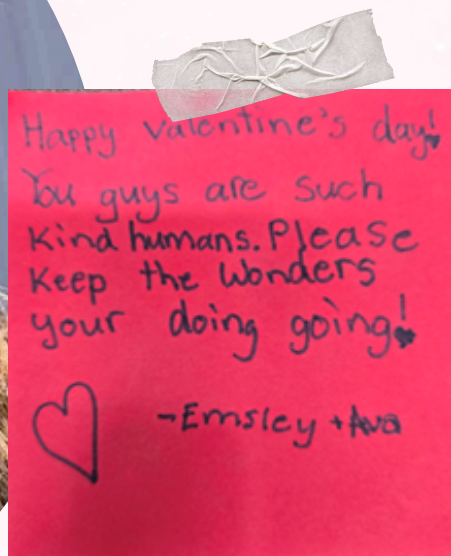 Happy Valentine's day!
You guys are such
kind humans. Please
keep the wonders
your doing going!
-Emsley + Ava